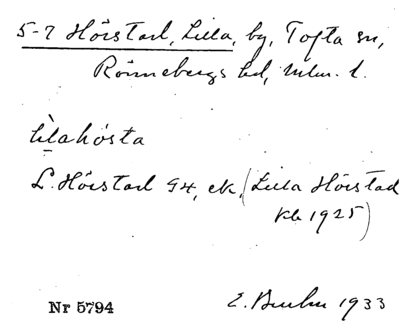 5-7 Hörstad, Lilla, by, Tofta sn,
Rönnebergs hd, Mlm. l.
lìlahósta
L. Hörstad G4, ek. (Lilla Hörstad
Kb 1925)
Nr 5794 E. 1933